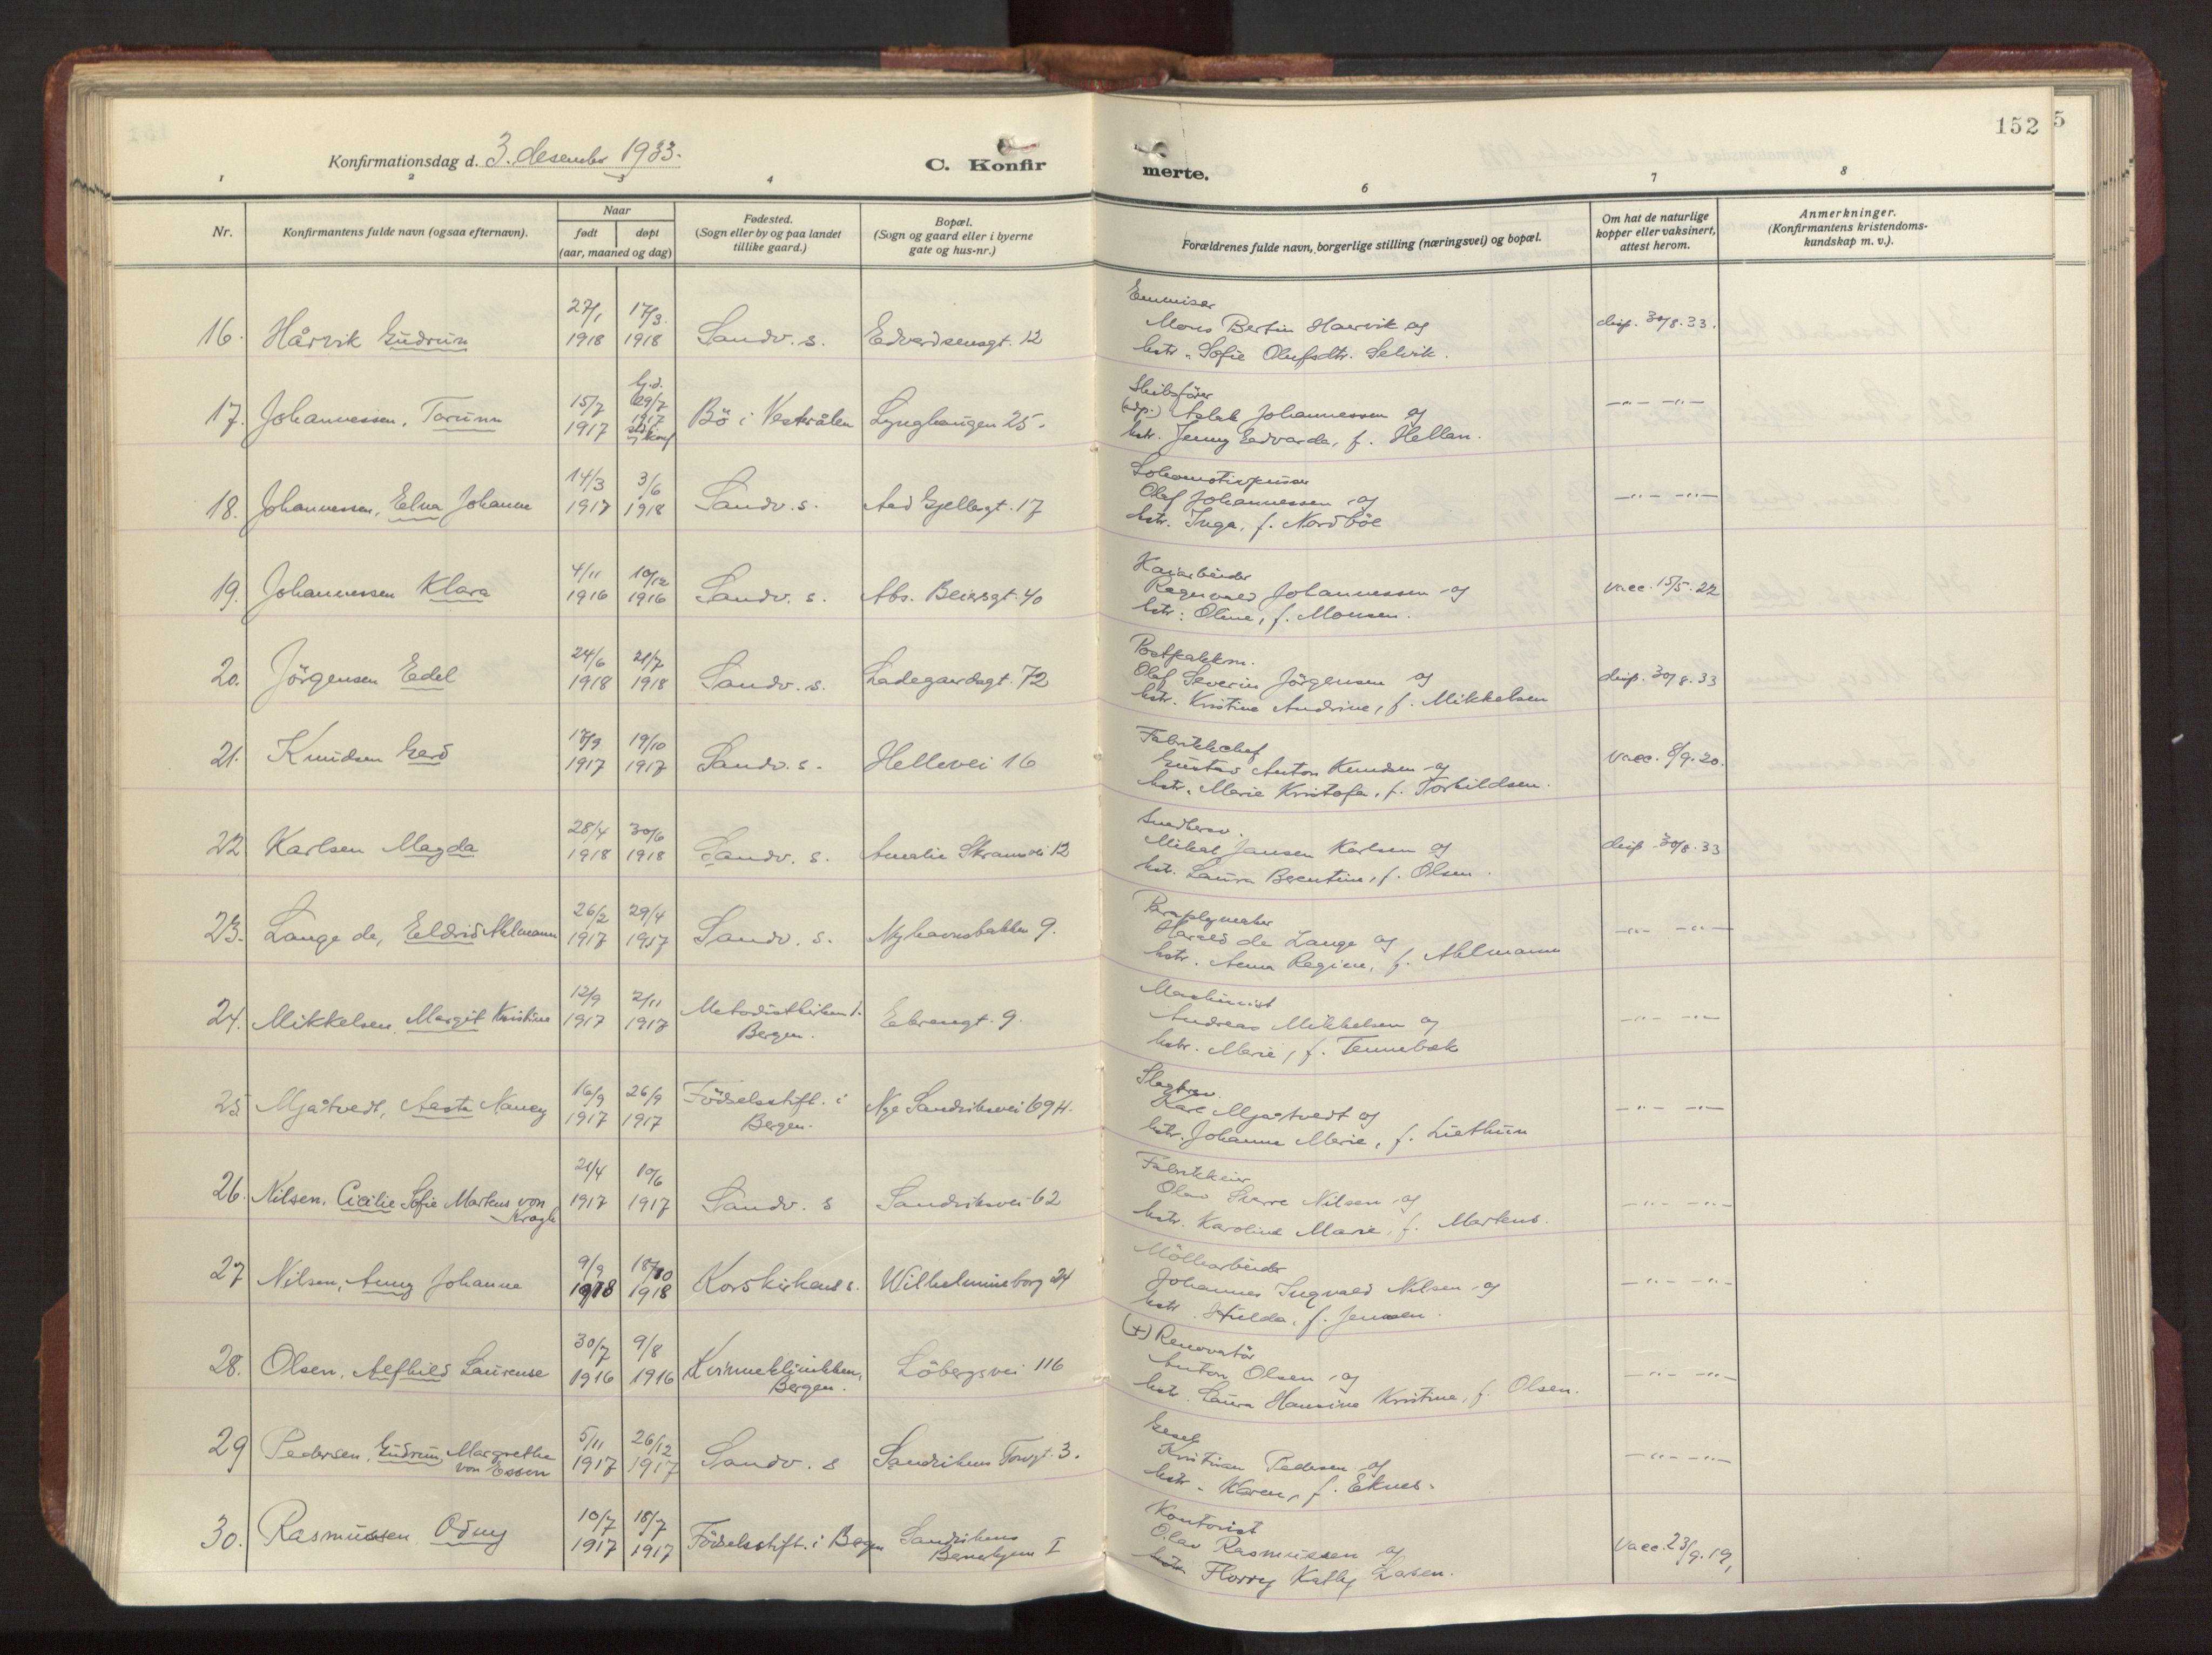 152
5
Konfirmationsdag d. 3. desember 1933.
C. Konfir
merte.
1
2
3
4
6
7
8
Nr.
Konfirmantens fulde navn (ogsaa efternavn).
Naar
født
døpt
(aar, maaned og dag)
Fødested.
(Sogn eller by og paa landet
tillike gaard.)
Bopæl.
(Sogn og gaard eller i byerne
gate og hus-nr.)
Forældrenes fulde navn, borgerlige stilling (næringsvei) og bopæl.
Om hat de naturlige
kopper eller vaksinert,
attest herom.
Anmerkninger.
(Konfirmantens kristendoms-
kundskap m. v.).
16. Hårvik Gudrun
27/1 1918
17/3. 1918
Sandv. s.
Edvardsensgt. 12
Mons Bertin Haarvik og
hstr. Sofie Olufsdtr. Selvik.
disp. 30/8. 33.
17. Johannessen, Torunn
15/7 1917
hj.d. 29/7 1917
Bö i Vesterålen
Lynghaugen 25.
Skibsfører
(adp.) Aslak Johannessen og
hstr. Jenny Edvarda, f. Hellan.
—"— —"—
18. Johannessen, Elna Johanne
14/3 1917
3/6 1918
Sandv. s.
Aad Gjellesgt. 17
Lokomotivpusser
Olaf Johannessen og
hstr. Inga, f. Nordböe
—"— —"—
19. Johannessen Klara
4/11 1916
10/12 1916
Sandv. s.
Abs. Beiersgt. 40
Kaiarbeider
Ragnvald Johannessen og
hstr. Oline, f. Monsen.
vacc. 15/5. 22
20. Jörgensen Edel
24/6 1918
21/7 1918
Sandv. s.
Ladegaardsgt. 72
Postpakkm.
Olaf Severin Jörgensen og
hstr. Kristine Andrine, f. Mikkelsen
disp. 30/8. 33
21. Knudsen Gerd
17/9 1917
19/10 1917
Sandv. s.
Hellevei 16
Fabrikkchef
Gustav Anton Knudsen og
hstr. Marie Kristofa, f. Torkildsen.
vacc. 8/9. 20.
22. Karlsen Magda
28/4 1918
30/6 1918
Sandv. s.
Amalie Skramsvei 12
Mikal Jansen Karlsen og
hstr. Laura Berentine, f. Olsen.
disp. 30/8. 33
23. Lange de, Eldrid Ahlmann
26/2 1917
29/4 1917
Sandv. s.
Nyhavnsbakken 9.
Paraplymaker
Harald de Lange og
hstr. Anna Regine, f. Ahlmann
—"— —"—
24. Mikkelsen, Margit Kristine
12/9 1917
2/11 1917
Metodistkirken i
Bergen.
Ebrensgt. 9.
Maskinist
Andreas Mikkelsen og
hstr. Marie, f. Tennebæk
—"— —"—
25 Mjåtvedt, Aasta Nancy
16/9 1917
26/9 1917
Födselsstift. i
Bergen.
Nye Sandviksvei 69 H.
Kare Mjåtvedt og
hstr. Johanne Marie, f. Liethun
—"— —"—
26. Nilsen, Cicilie Sofie Martens von
Krogh
21/4 1917
10/6 1917
Sandv. s
Sandviksvei 62
Fabrikkeier
Olav Sverre Nilsen og
hstr. Karoline Marie, f. Martens.
—"— —"—
27 Nilsen, Anny Johanne
9/9 1918
18/10 1918
Korskirkens s.
Wilhelmineborg 24
Möllearbeider
Johannes Ingvald Nilsen og
hstr. Hulda, f. Jensen.
—"— —"—
28. Olsen, Alfhild Laurense
30/7 1916
9/8 1916
Kvinneklinikken,
Bergen.
Löbergsvei 116
(+) Renovatör
Anton Olsen og
hstr. Laura Hansine Kristine, f. Olsen.
—"— —"—
29 Pedersen, Gudrun Margrethe
von Essen
5/11 1917
26/12 1917
Sandv. s
Sandvikens Torvgt. 3.
Kristian Pedersen og
hstr. Karen, f. Eknes.
—"— —"—
30. Rasmussen Odny
10/7 1917
18/7 1917
Födselsstift. i Bergen
Sandvikens
I
Kontorist
Olav Rasmussen og
hstr. Florry Kathy Larsen.
vacc. 23/9. 19,